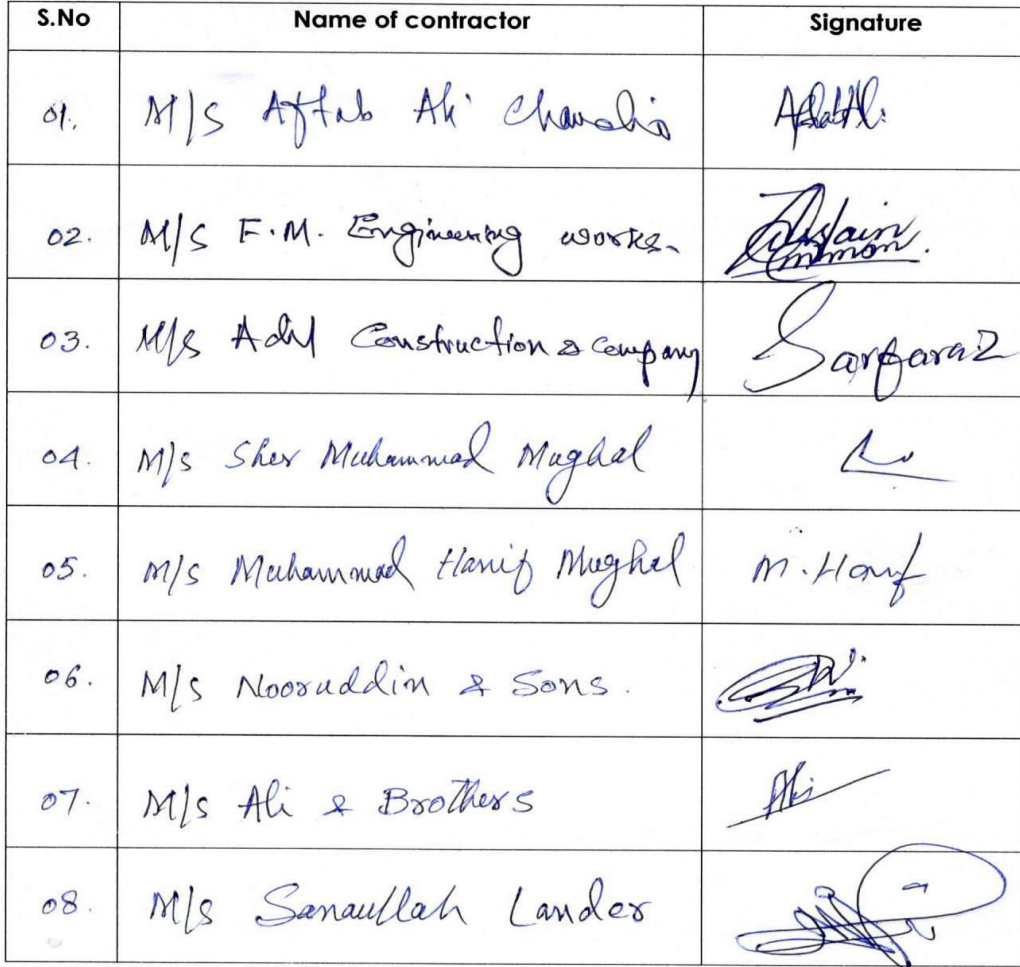 S.No Name of contractor Signature
01. M/S Aftab Ali Chandio Aftab Ali
02. M/S F.M. Engineering works.
03. M/S Adil Construction & Company Sarfaraz
04. M/S Sher Muhammad Mughal
05. M/S Muhammad Hanif Mughal M. Hanif
06. M/S Nooruddin & Sons.
07. M/S Ali & Brothers Ali
08. M/S Sanaullah Lander